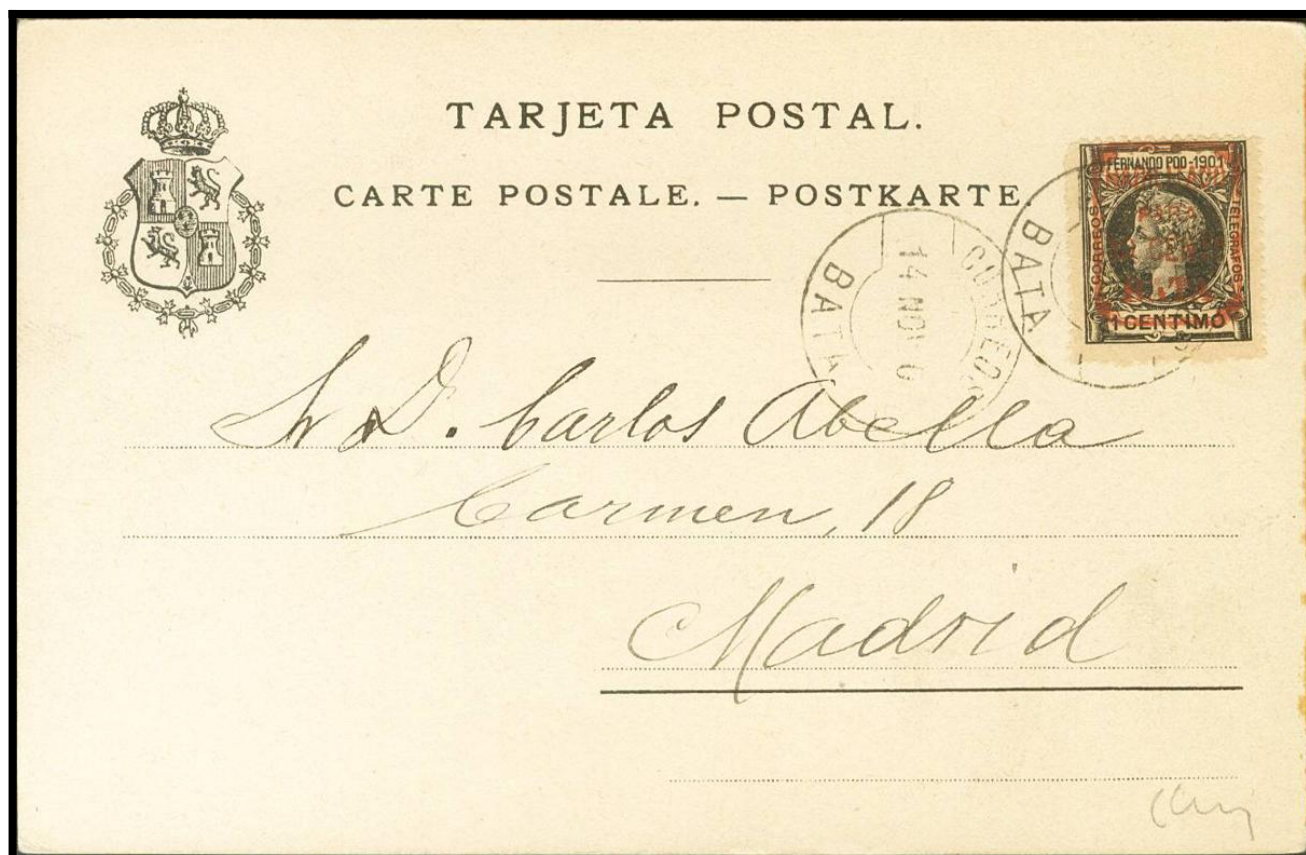 TARJETA POSTAL.
CARTE POSTALE. — POSTKARTE.
FERNANDO POO-1901
CORREOS
TELEGRAFOS
1 CENTIMO
BATA
CORREOS
14 NOV
BATA
D. Carlos Abella
Carmen, 18
Madrid